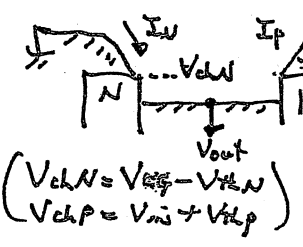 IN Ip
N ...VchN
Vout
VchN = V - VthN
VchP = Vin + Vthp